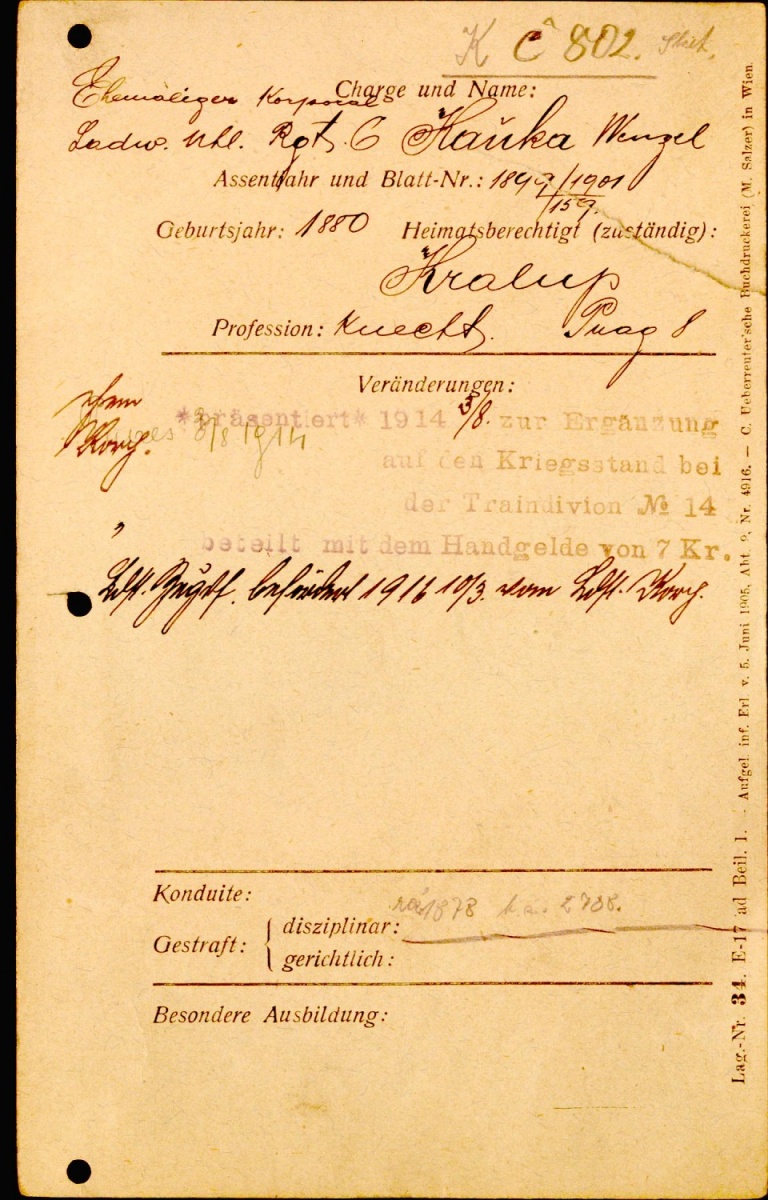 K Č 802.
Charge und Name:
Ehemaliger Korporal
Ldw. Uhl. Rgt. 6 Hauka Wenzel
Assentjahr und Blatt-Nr.: 1899/1901
/159.
Geburtsjahr: 1880 Heimatsberechtigt (zuständig):
Kralup
Profession: Knecht. Prag 8
Veränderungen:
*präsentiert* 1914 3/8. zur Ergänzung
Korp. 3/8 1914
auf den Kriegsstand bei
der Traindivion № 14
beteilt mit dem Handgelde von 7 Kr.
Ldst. Zugsf. befördert 1916 10/3 vom Ldst. Korp.
Konduite:
Gestraft: { disziplinar:
gerichtlich:
Besondere Ausbildung:
Lag.-Nr. 34. E-17 ad Beil. 1. — Aufgel. inf. Erl. v. 5. Juni 1905, Abt. 2, Nr. 4916. — C. Ueberreuter'sche Buchdruckerei (M. Salzer) in Wien.